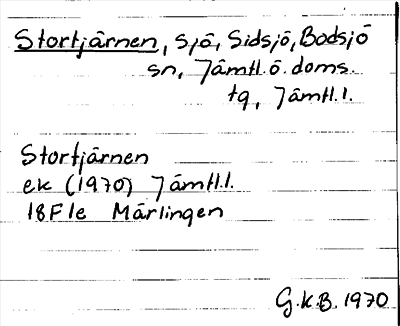 Stortjärnen, sjö, Sidsjö, Bodsjö
sn, Jämtl. ö. doms.
tg, Jämtl. l.
Stortjärnen
ek (1970) Jämtl. l.
18F1e Märlingen
G.K.B. 1970